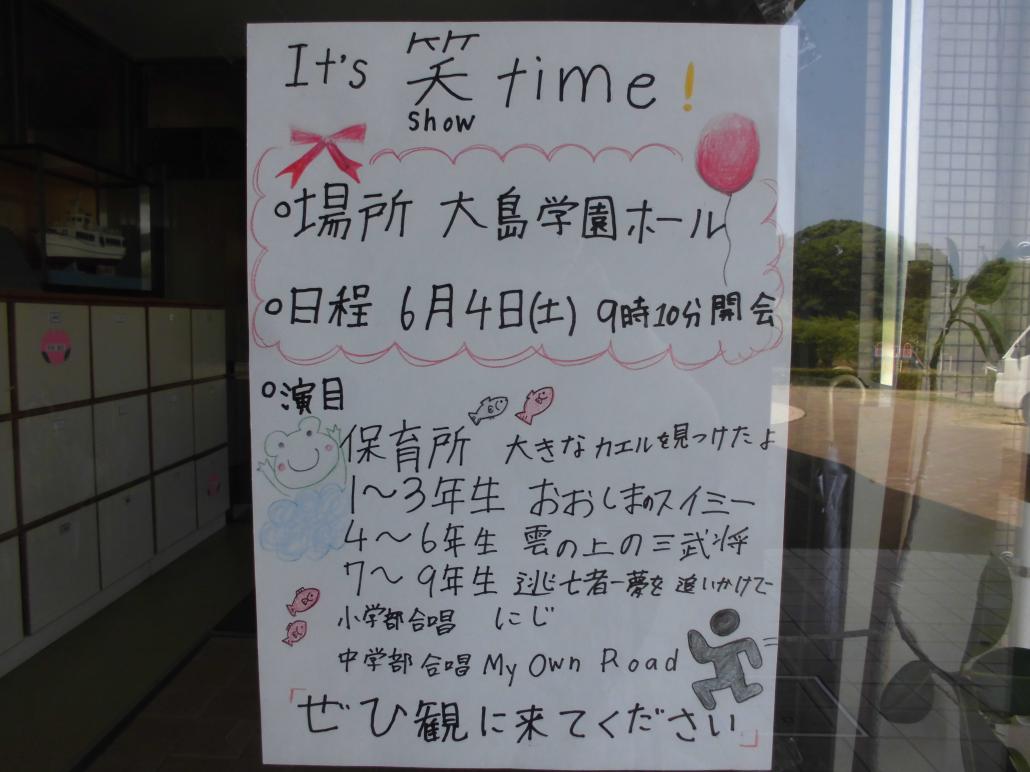 It's 笑 time!
show
○場所 大島学園ホール
○日程 6月4日(土) 9時10分開会
○演目
保育所 大きなカエルを見つけたよ
1〜3年生 おおしまのスイミー
4〜6年生 雲の上の三武将
7〜9年生 逃亡者ー夢を追いかけてー
小学部合唱 にじ
中学部合唱 My Own Road
「ぜひ観に来てください」